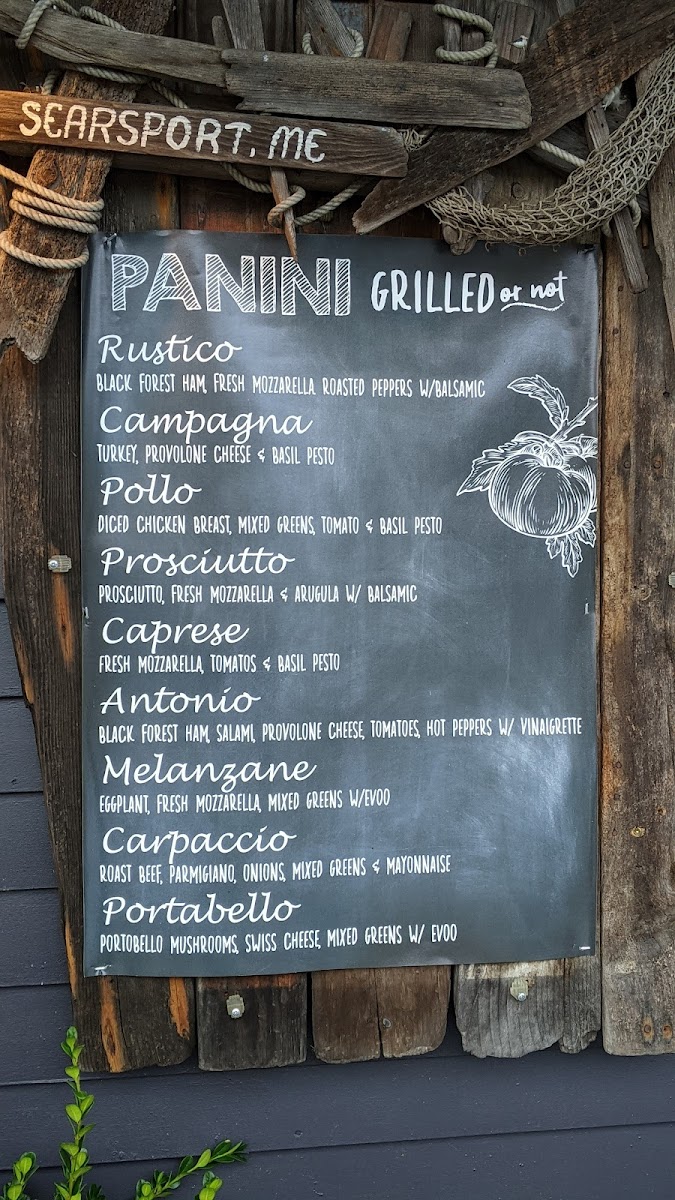 SEARSPORT, ME
PANINI GRILLED or not
Rustico
BLACK FOREST HAM, FRESH MOZZARELLA, ROASTED PEPPERS W/BALSAMIC
Campagna
TURKEY, PROVOLONE CHEESE & BASIL PESTO
Pollo
DICED CHICKEN BREAST, MIXED GREENS, TOMATO & BASIL PESTO
Prosciutto
PROSCIUTTO, FRESH MOZZARELLA & ARUGULA W/ BALSAMIC
Caprese
FRESH MOZZARELLA, TOMATOS & BASIL PESTO
Antonio
BLACK FOREST HAM, SALAMI, PROVOLONE CHEESE, TOMATOES, HOT PEPPERS W/ VINAIGRETTE
Melanzane
EGGPLANT, FRESH MOZZARELLA, MIXED GREENS W/EVOO
Carpaccio
ROAST BEEF, PARMIGIANO, ONIONS, MIXED GREENS & MAYONNAISE
Portabello
PORTOBELLO MUSHROOMS, SWISS CHEESE, MIXED GREENS W/ EVOO